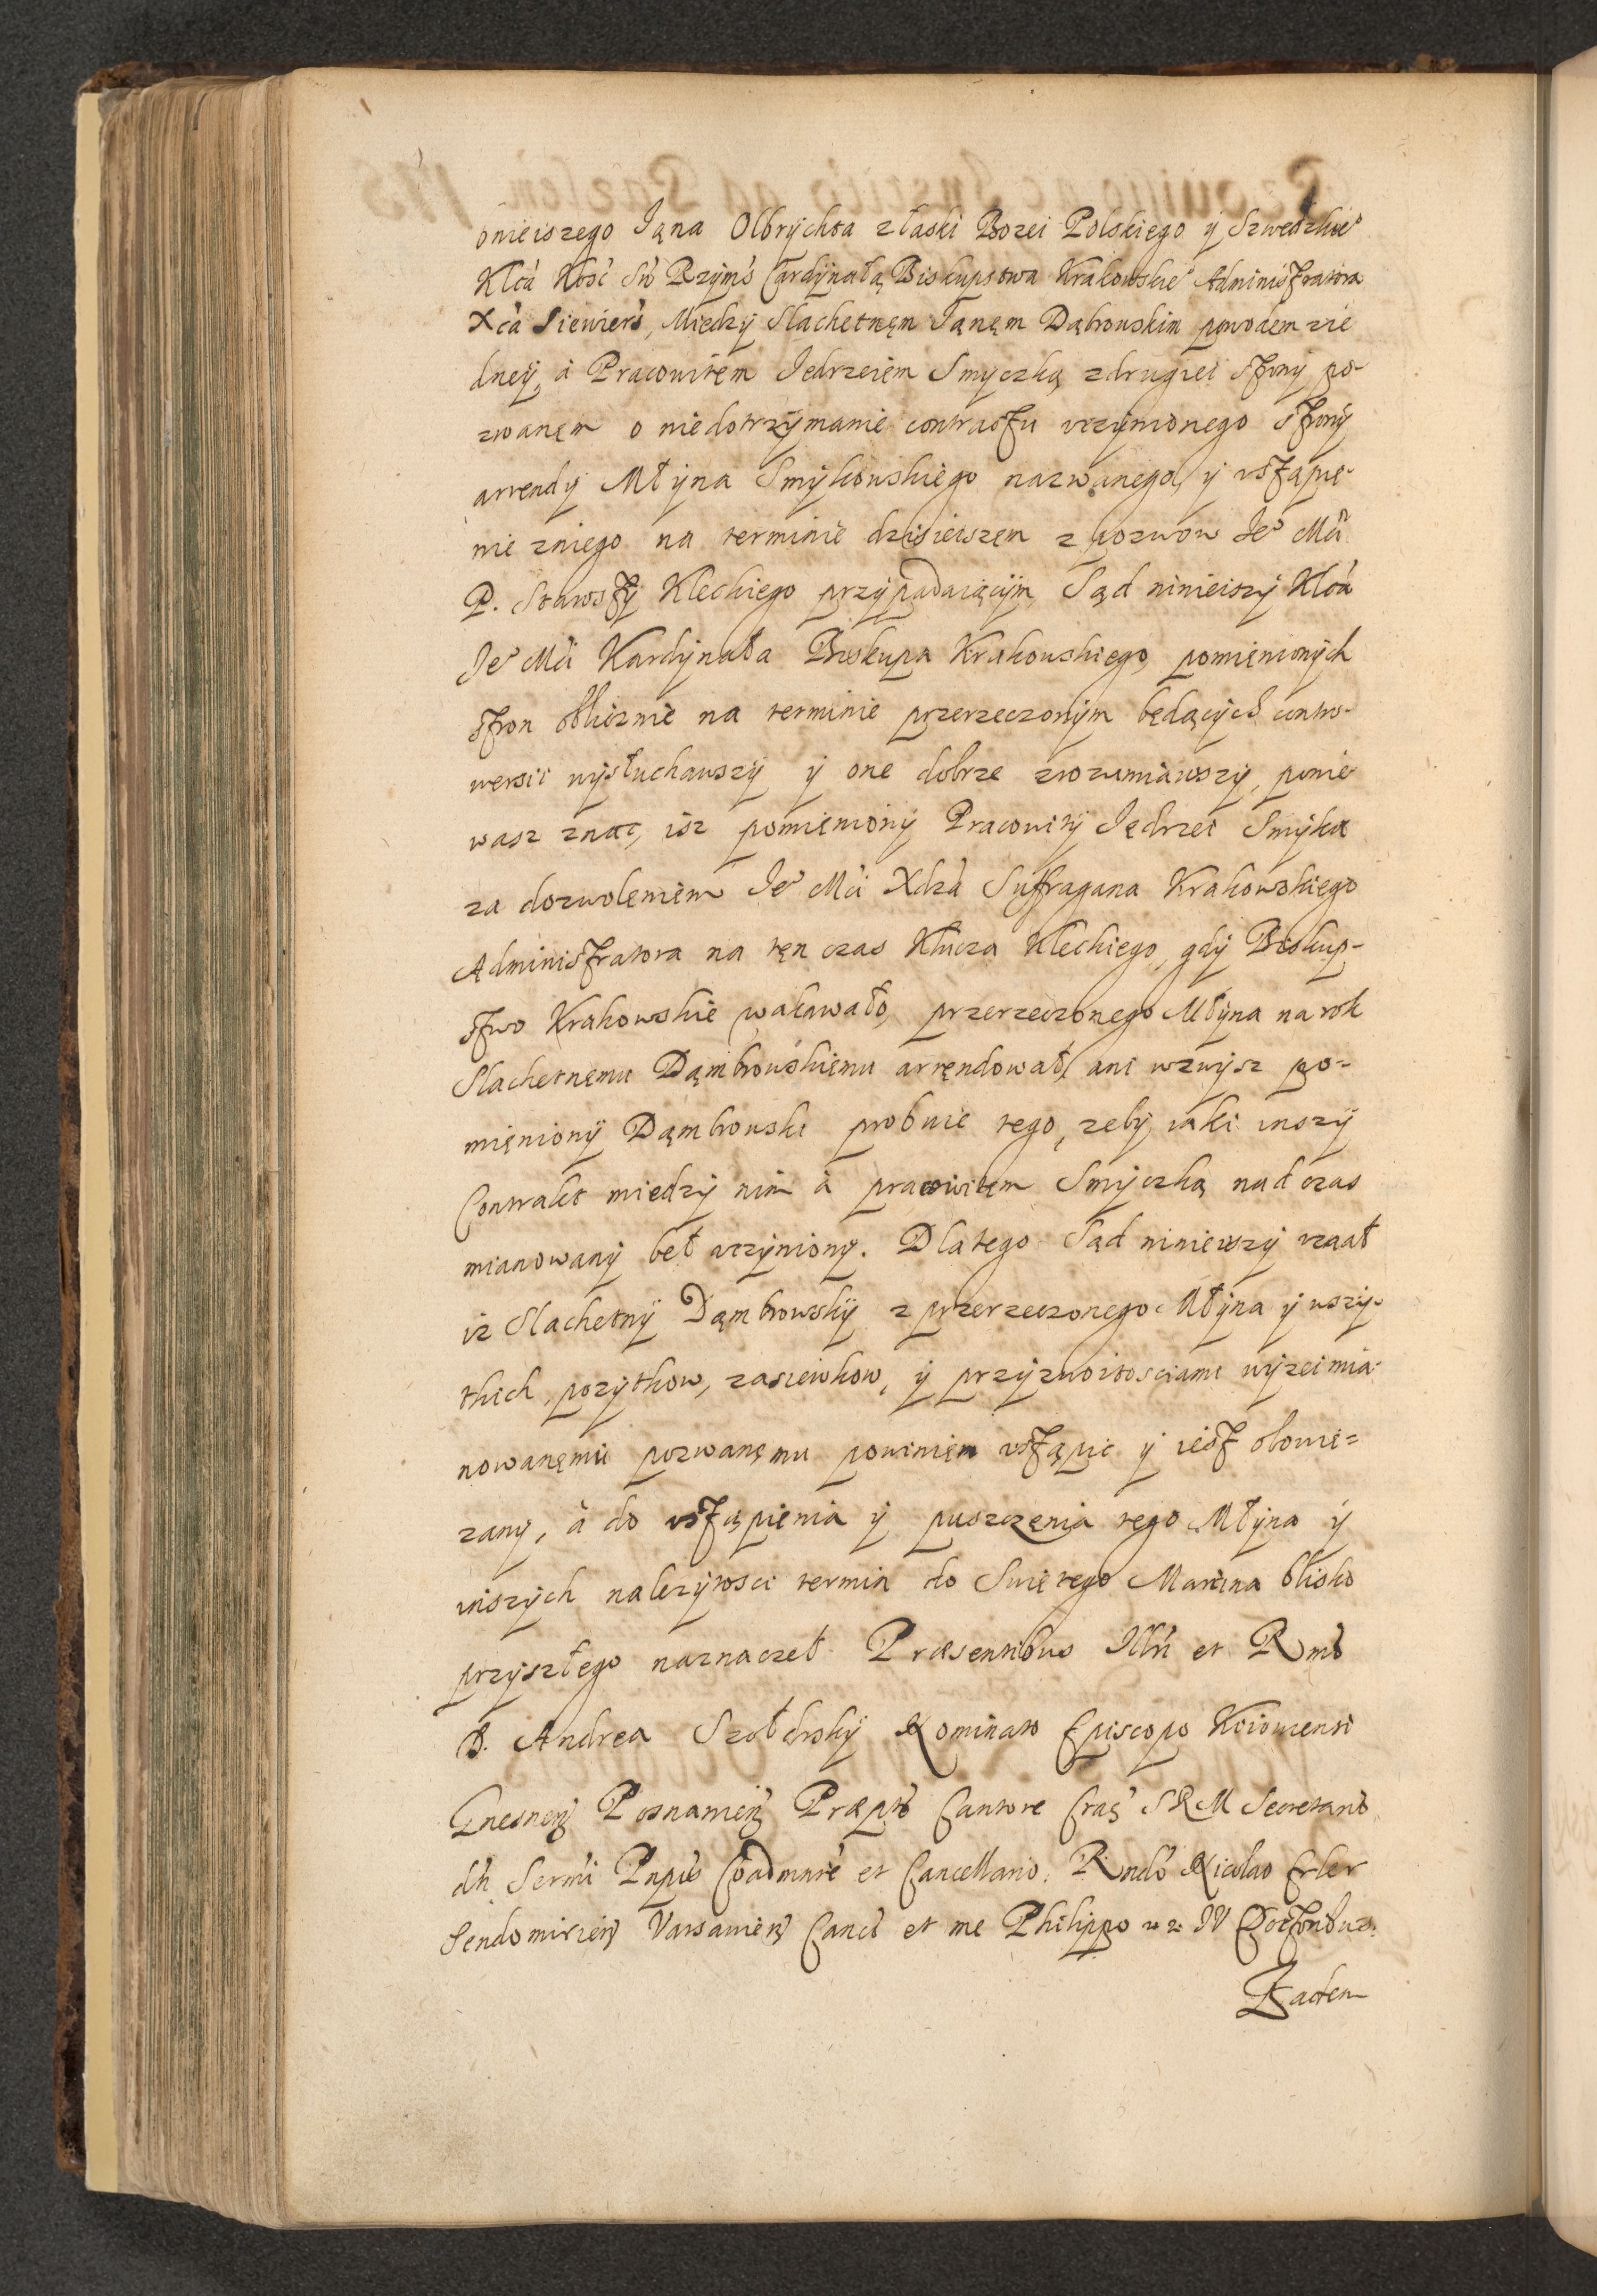 śnieiszego Jąna Olbrychta z łaski Bozei Polskiego ÿ Szwedzkie°
Klca Kosć Sw Rzyms Cardÿnałą Biskupstwa Krakowskie° Administratora
Xcà Siewiers, Miedzÿ Slachetnęm Jąnęm Dąbrowskim powodem z ie
dneÿ, à Pracowitem Jedrzeiem Smyczką z drugiei stronÿ po-
zwanęm o niedotrzÿmanie contractu vczynionego stronÿ
arrendÿ Młÿna Smÿkowskiego nazwanego, ÿ vstąpie-
nie zniego na terminie dzisieiszęm z pozwow Je° Mci
P. Starostÿ Kleckiego przÿpadaiącÿm, Sąd ninieiszÿ Klcà
Je° Mci Kardÿnała Biskupa Krakowskiego, pomienionÿch
stron obliecznie na terminie przerzeczonÿm będącÿch contro-
wersii wÿsłuchawszÿ ÿ one dobrze zrozumiawszÿ, ponie
wasz znac, isz pomienionÿ Pracowitÿ Jędrzei Smÿka
za dozwolęniem Je° Mci Xdzà Suffragana Krakowskiego
Administratora na tęn czas Klucza Kleckiego, gdÿ Biskup-
stwo Krakowskie wakawało, przerzeczonego Młÿna na rok
Slachetnęmu Dąmbrowskiemu arręndował, ani wzwÿsz po-
mięnionÿ Dąmbrowski probuie tego, zebÿ iaki inszÿ
Contrakt miedzÿ nim à pracowitem Smÿczką nad czas
mianowanÿ beł vczÿnionÿ. Dlatego Sąd ninieiszÿ vznał
iz Slachetnÿ Dąmbrowskÿ z przerzeczonego Młÿna ÿ wszÿ-
tkich pozÿtkow, zasiewkow, ÿ przÿzwoitosciami wÿzei mia-
nowanęmu pozwanęmu powinięn vstąpic ÿ iest obowie=
zanÿ, à do vstąpięnia ÿ puszczęnia tego Młÿna ÿ
inszÿch nalezÿtosci termin do Swiętego Marcina blisko
przÿszłego naznaczeł. Præsentibus Illri et Rmo
D. Andrea Szołdrskÿ Nominato Episcopo Kiiowiensi
Gnesnen Posnanien Præpto Cantore Crac S R M Secretario
dh Sermi Pnpis Coadmnre et Cancellario. Rndo Nicolao Erler
Sendomirien Varsavien Canco et me Philippo
Zactem